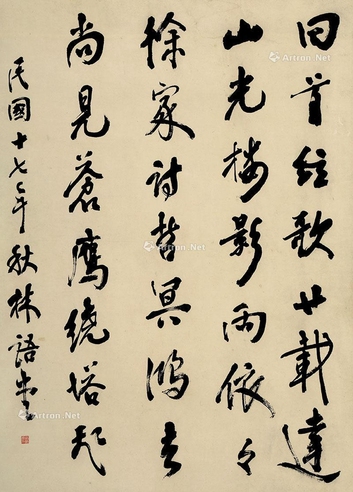 回首弦歌廿載違
山光樓影兩依々
徐家詩哲冥鴻去
尚見蒼鷹繞塔起
民國十七年秋林語堂
Artron.Net
Artron.Net
Artron.Net
Artron.Net
Artron.Net